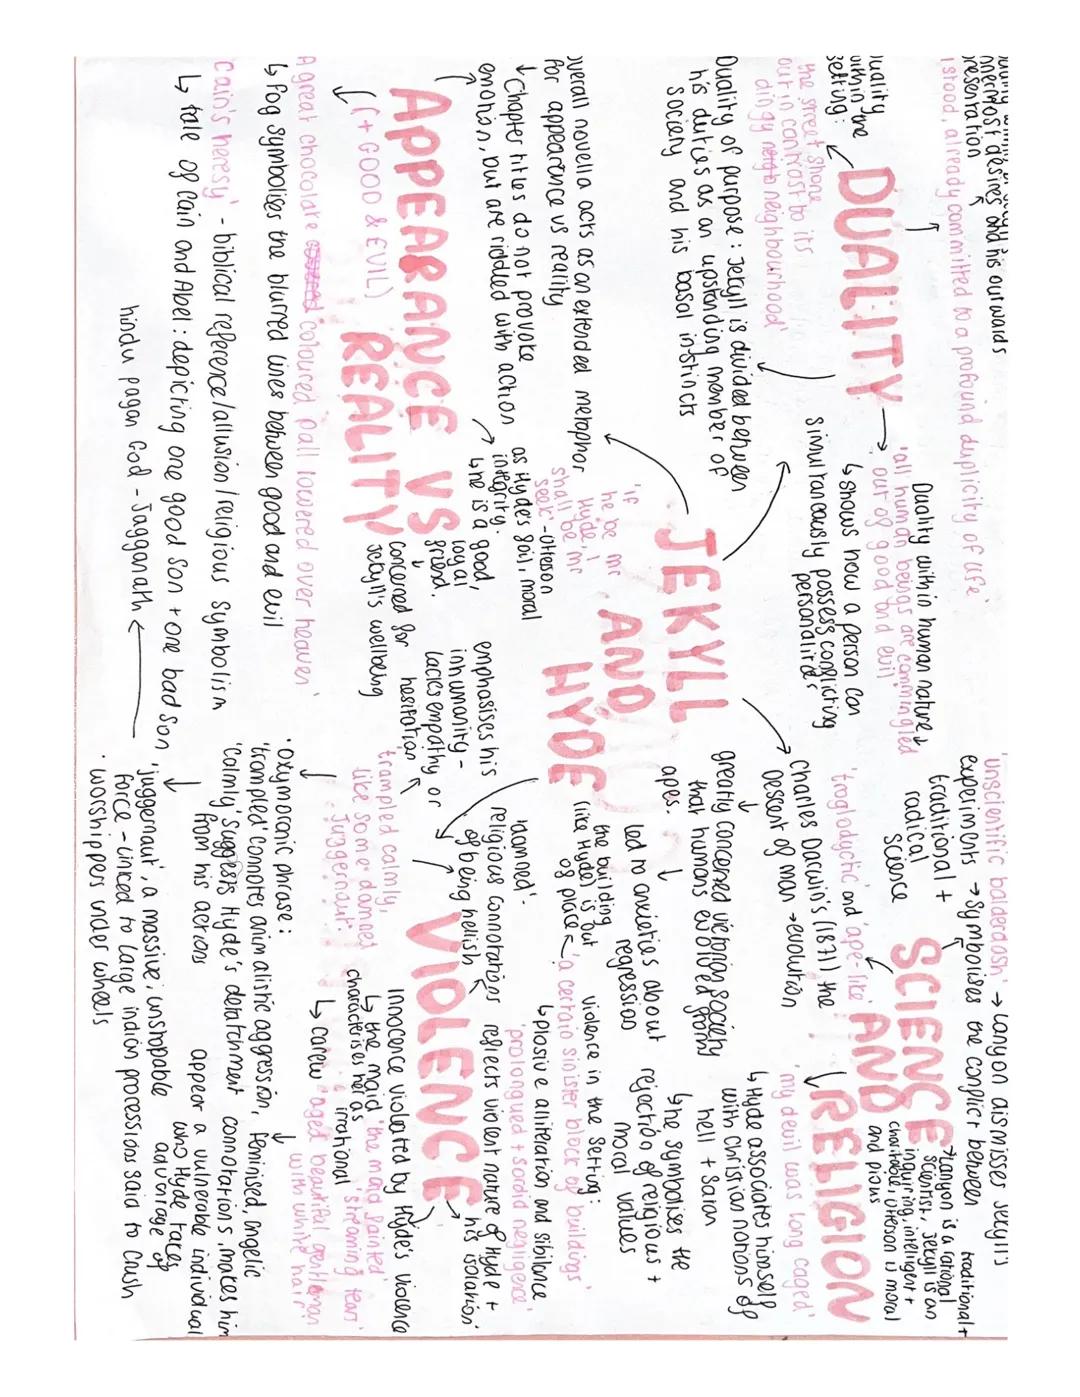 desires and his outwards
presentation
'I stood, already committed to a profound duplicity of life'
DUALITY
Duality
within the
setting:
'the street shone
out in contrast to its
dingy neighbourhood'
Duality of purpose: Jekyll is divided between
his duties as an upstanding member of
society and his basal instincts
Duality within human nature ↓
'all human beings are commingled
out of good and evil'
↳ shows how a person can
simultaneously possess conflicting
personalities
JEKYLL
AND
HYDE
overall novella acts as an extended metaphor
for appearance vs reality
↓ Chapter titles do not provoke
emotion, but are riddled with action
APPEARANCE VS
REALITY
(+ GOOD & EVIL)
'A great chocolate coloured pall lowered over heaven'
↳ fog symbolises the blurred lines between good and evil
'Cain's heresy' - biblical reference/allusion/religious symbolism
↳ tale of Cain and Abel: depicting one good son + one bad son
hindu pagan God - Jagganath
'if
he be mr
Hyde, I
shall be mr
seek' - Utterson
as Hyde's foil, moral
integrity.
↳ he is a good,
loyal
friend.
↓
concerned for
Jekyll's wellbeing
'unscientific balderdash' → Lanyon dismisses Jekyll's
experiments → Symbolises the conflict between
traditional +
radical
science
traditional +
SCIENCE
AND
RELIGION
Lanyon is a rational
scientist, Jekyll is an
inquiring, intelligent +
charitable, Utterson is moral
and pious
'troglodytic' and 'ape-like'
Charles Darwin's (1871) the
Descent of man → evolution
greatly concerned victorian society
that humans evolved from
apes.
↓
Led to anxieties about
regression
'my devil was long caged'
↳ Hyde associates himself
with Christian notions of
hell + Satan
↳ he symbolises the
rejection of religious +
moral values
VIOLENCE
the building
(like Hyde) is out
of place
violence in the setting:
'a certain sinister block of buildings'
↳ plosive alliteration and sibilance
'prolongued + sordid negligence'
reflects violent nature of Hyde +
his isolation
'damned' -
religious connotations
of being hellish
emphasises his
inhumanity -
lacks empathy or
hesitation
'trampled calmly,
like some damned
Juggernaut'
Innocence violated by Hyde's violence
↳ the maid 'the maid fainted'
characterises her as 'streaming tears'
irrational
↳ Carew 'aged beautiful gentleman
with white hair'
appear a vulnerable individual
who Hyde takes
advantage of
• Oxymoronic phrase:
'trampled' connotes animalistic aggression,
'calmly' suggests Hyde's detatchment
from his actions
feminised, angelic
connotations, makes him
'juggernaut', a massive, unstopable
force - linked to large indian processions said to crush
• worshippers under wheels